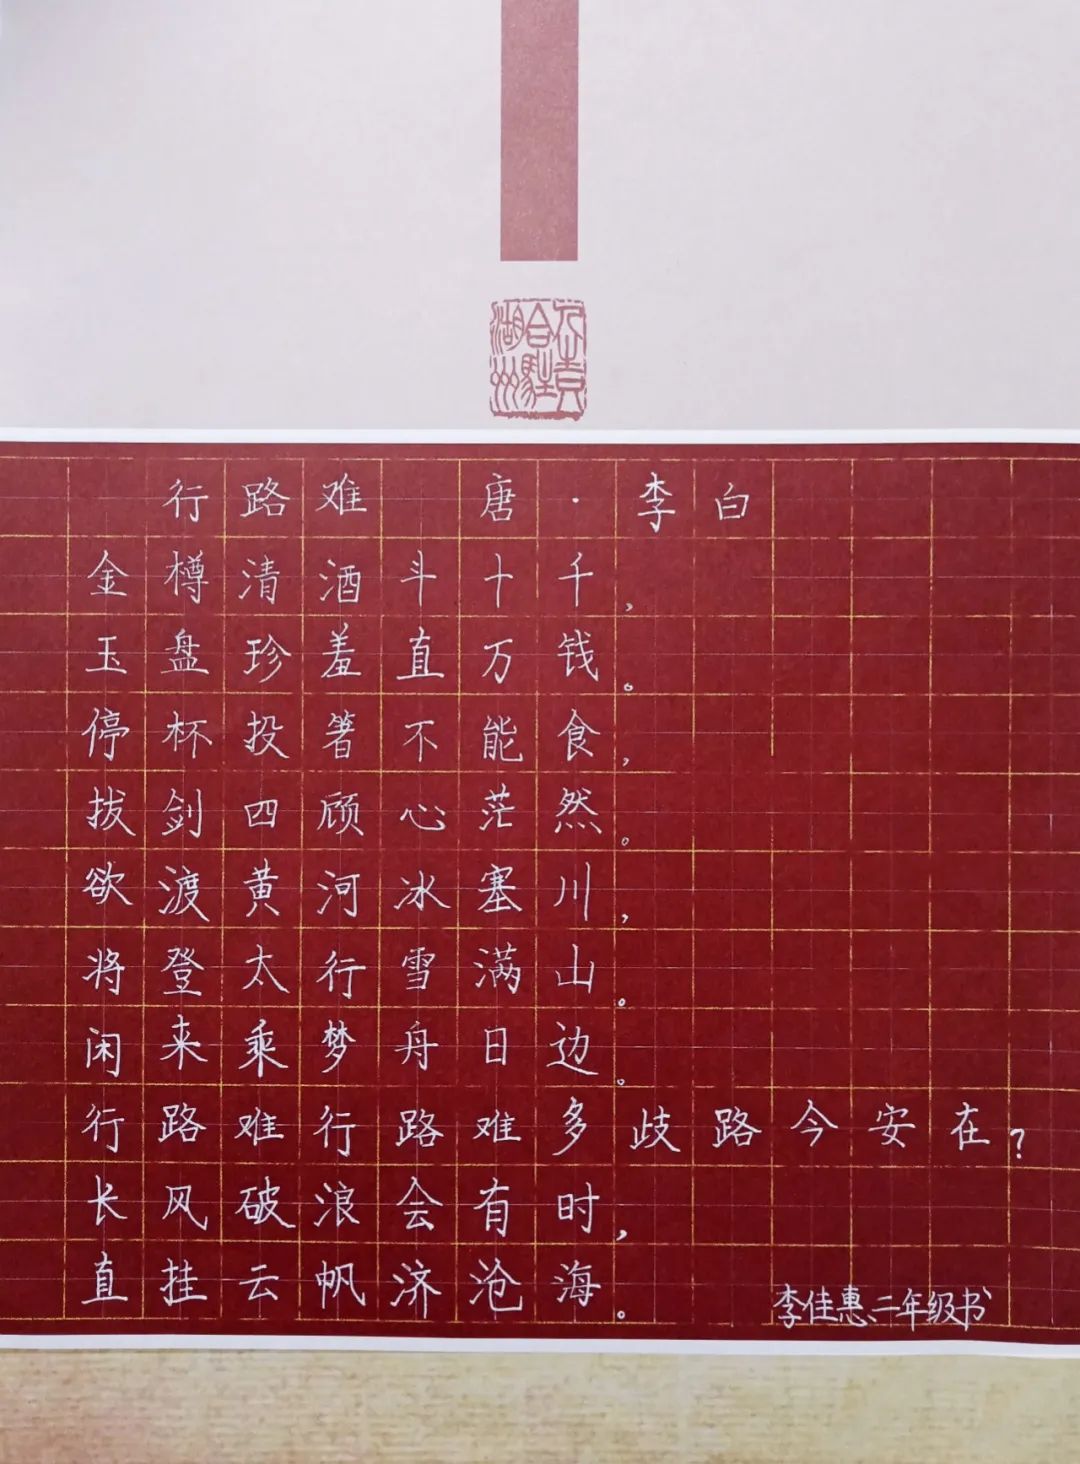 行路难 唐·李白
金樽清酒斗十千，
玉盘珍羞直万钱。
停杯投箸不能食，
拔剑四顾心茫然。
欲渡黄河冰塞川，
将登太行雪满山。
闲来乘梦舟日边。
行路难行路难多歧路今安在?
长风破浪会有时，
直挂云帆济沧海。
李佳惠、二年级书